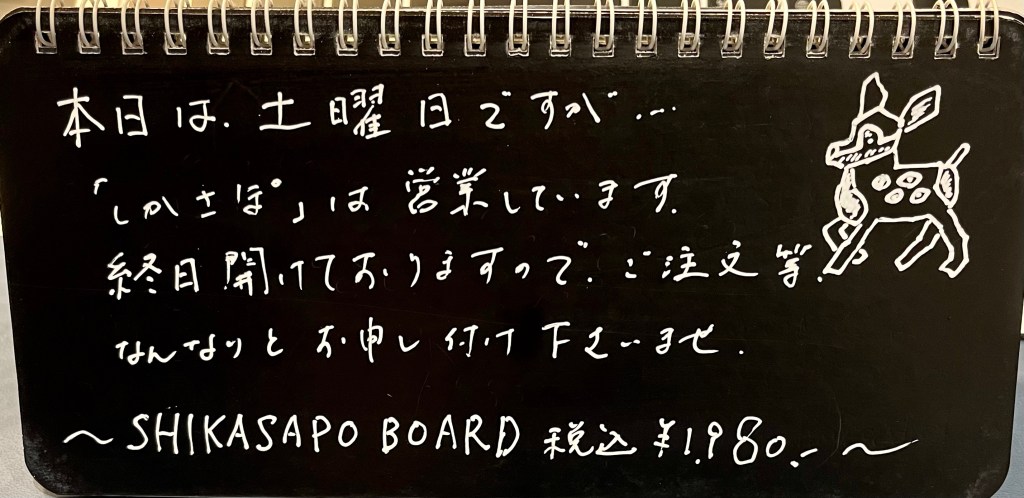 本日は、土曜日ですが…
「しかさぽ」は営業しています。
終日開けておりますので、ご注文等、
なんなりとお申し付け下さいませ。
～SHIKASAPO BOARD 税込¥1,980.-～